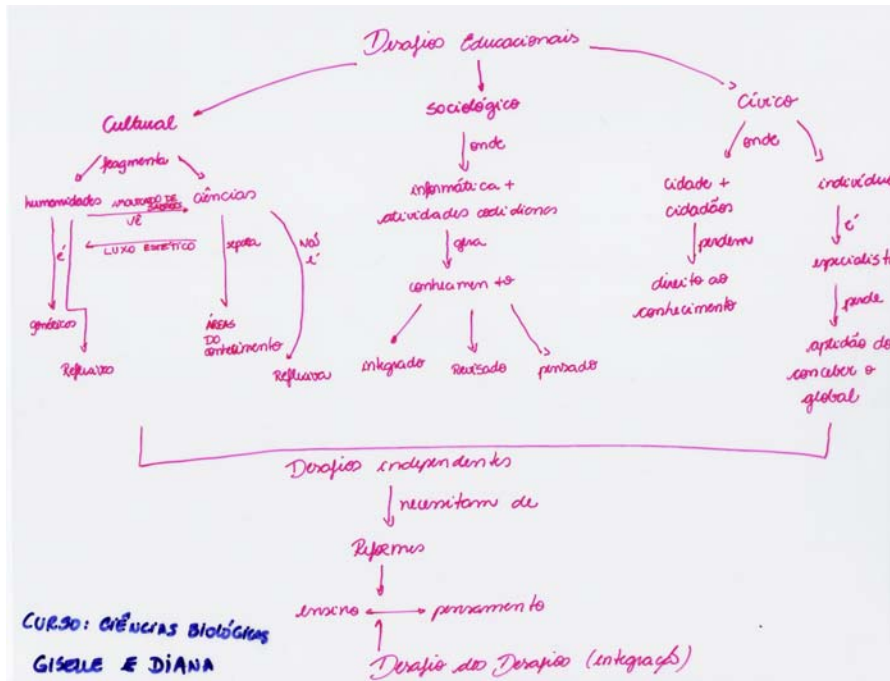 Desafios Educacionais
Cultural
Sociológico
Cívico
fragmenta
onde
onde
humanidades
AMONTOADO DE SABERES
ciências
VÊ
LUXO ESTÉTICO
é
separa
Não é
genéricos
Reflexivo
ÁREAS
DO
conhecimento
Reflexiva
informática +
atividades cotidianas
gera
conhecimento
integrado
Revisado
pensado
cidade +
cidadãos
perdem
direito ao
conhecimento
indivíduo
é
especialista
perde
aptidão de
conceber o
global
Desafios independentes
necessitam de
Reformas
ensino
pensamento
Desafio dos Desafios (integração)
CURSO: CIÊNCIAS BIOLÓGICAS
GISELLE E DIANA